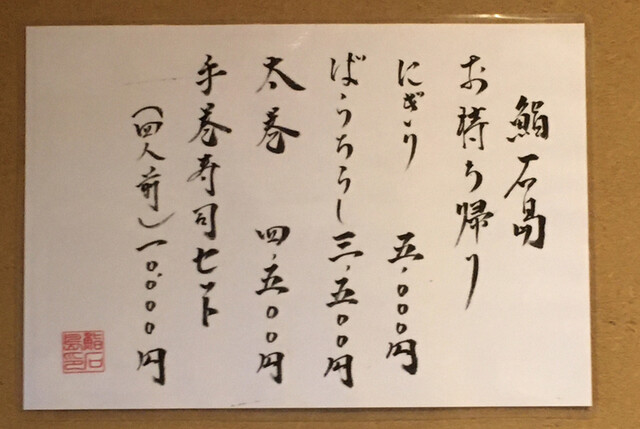 鮨石島
お持ち帰り
にぎり 五、〇〇〇円
ばらちらし 三、五〇〇円
太巻 四、五〇〇円
手巻寿司セット
(四人前)一〇、〇〇〇円
鮨石島印